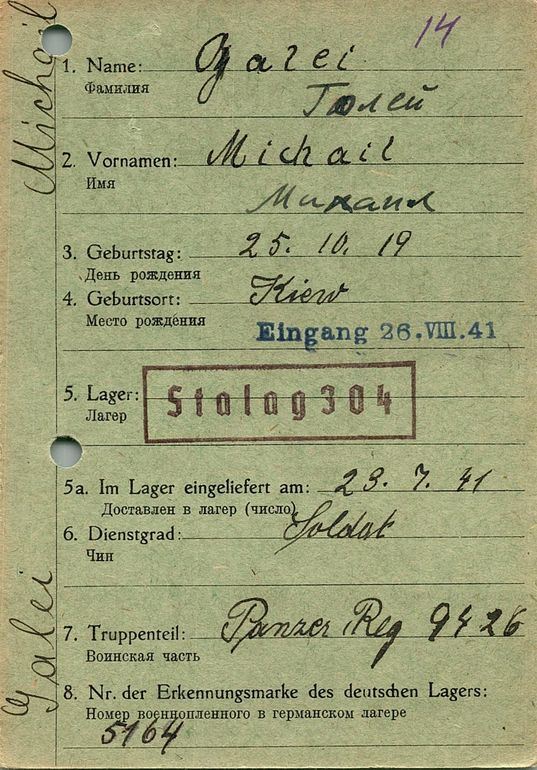 14
1. Name: Galei
Фамилия
Голей
2. Vornamen: Michail
Имя
Михаил
3. Geburtstag: 25. 10. 19
День рождения
4. Geburtsort: Kiew
Место рождения
Eingang 26.VIII.41
5. Lager: Stalag 304
Лагер
5a. Im Lager eingeliefert am: 23. 7. 41
Доставлен в лагер (число)
6. Dienstgrad: Soldat
Чин
7. Truppenteil: Panzer Reg 9426
Воинская часть
8. Nr. der Erkennungsmarke des deutschen Lagers:
Номер военнопленного в германском лагере
5164
Galei Michail